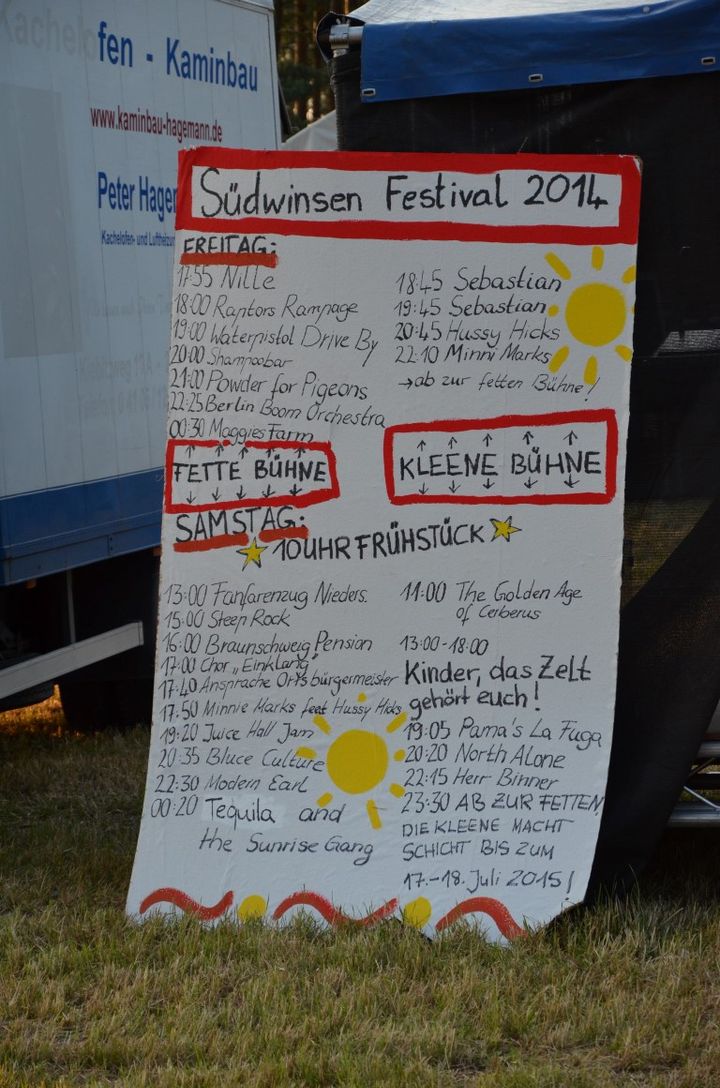 fen - Kaminbau
www.kaminbau-hagemann.de
Peter Hagem
Kachelofen- und Luftheizun
Südwinsen Festival 2014
FREITAG:
17:55 Nille
18:00 Raptors Rampage
19:00 Waterpistol Drive By
20:00 Shampoobar
21:00 Powder for Pigeons
22:25 Berlin Boom Orchestra
00:30 Maggies Farm
18:45 Sebastian
19:45 Sebastian
20:45 Hussy Hicks
22:10 Minni Marks
→ab zur fetten Bühne!
FETTE BÜHNE
KLEENE BÜHNE
SAMSTAG:
10 UHR FRÜHSTÜCK
13:00 Fanfarenzug Nieders.
15:00 Steep Rock
16:00 Braunschweig Pension
17:00 Chor „Einklang"
17:40 Ansprache Ortsbürgermeister
17:50 Minnie Marks feat Hussy Hicks
19:20 Juice Hall Jam
20:35 Bluce Culture
22:30 Modern Earl
00:20 Tequila and
the Sunrise Gang
11:00 The Golden Age
of Cerberus
13:00-18:00
Kinder, das Zelt
gehört euch!
19:05 Pama's La Fuga
20:20 North Alone
22:15 Herr Binner
23:30 AB ZUR FETTEN,
DIE KLEENE MACHT
SCHICHT BIS ZUM
17.-18. Juli 2015!